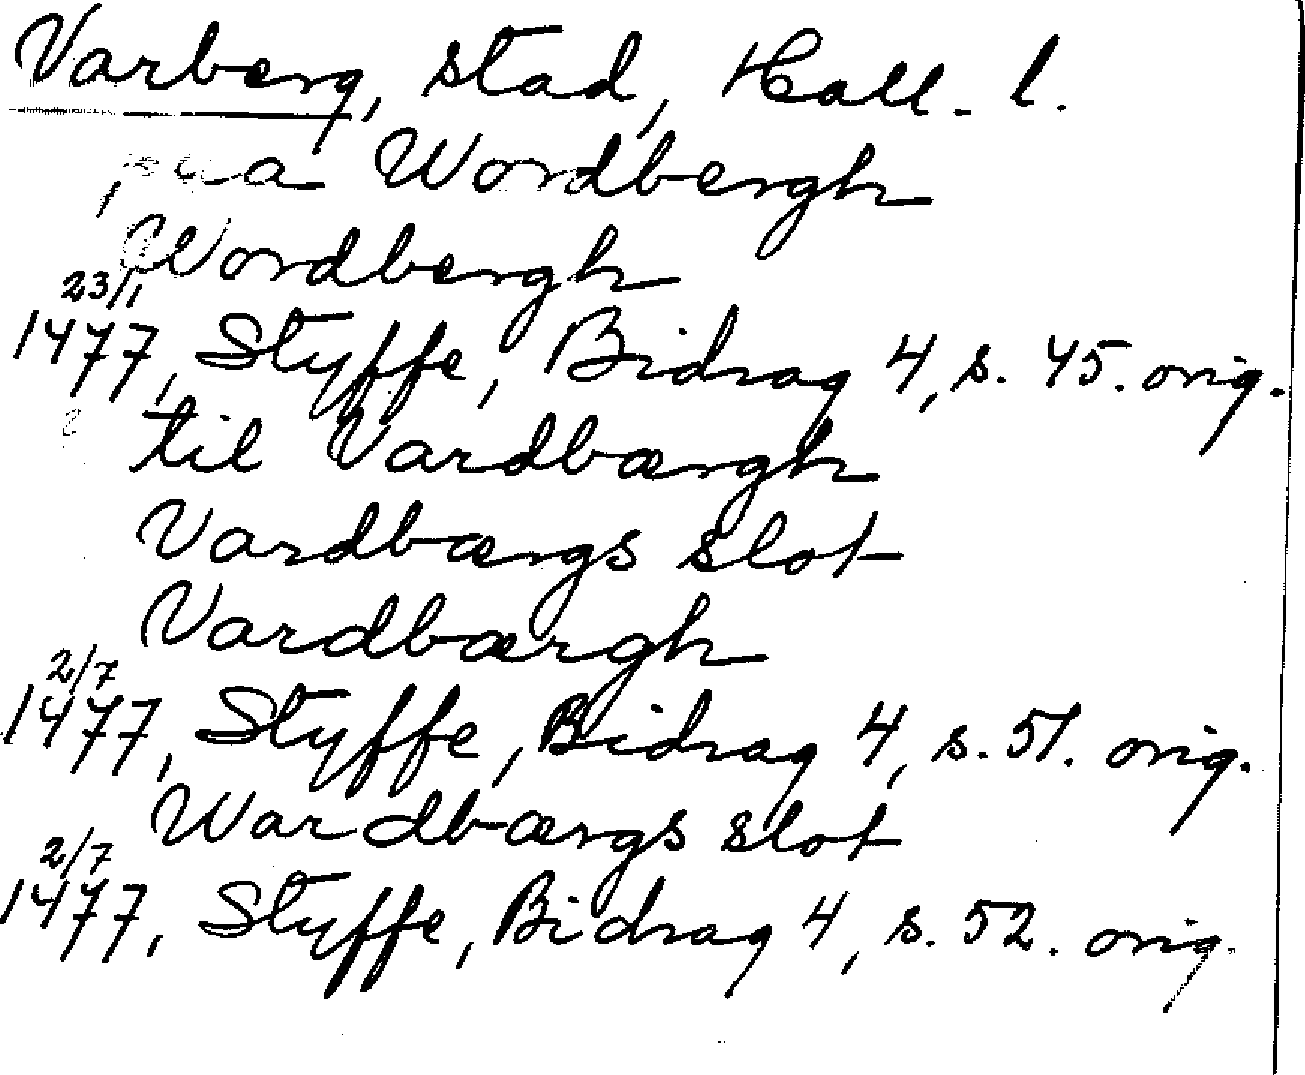 Varberg, stad, Hall. l.
paa Wordbergh
Wordbergh
23/1
1477, Styffe, Bidrag 4, s. 45. orig.
til Vardbærgh
Vardbærgs slot
Vardbærgh
2/7
1477, Styffe, Bidrag 4, s. 51. orig.
Wardbærgs slot
2/7
1477, Styffe, Bidrag 4, s. 52. orig.